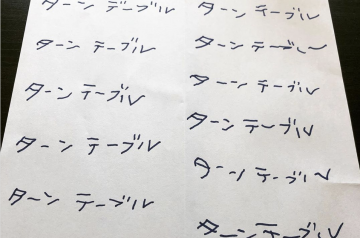 ターンテーブル
ターンテーブル
ターンテーブル
ターンテーブル
ターンテーブル
ターンテーブル
ターンテーブル
ターンテーブル
ターンテーブル
ターンテーブル
ターンテーブル